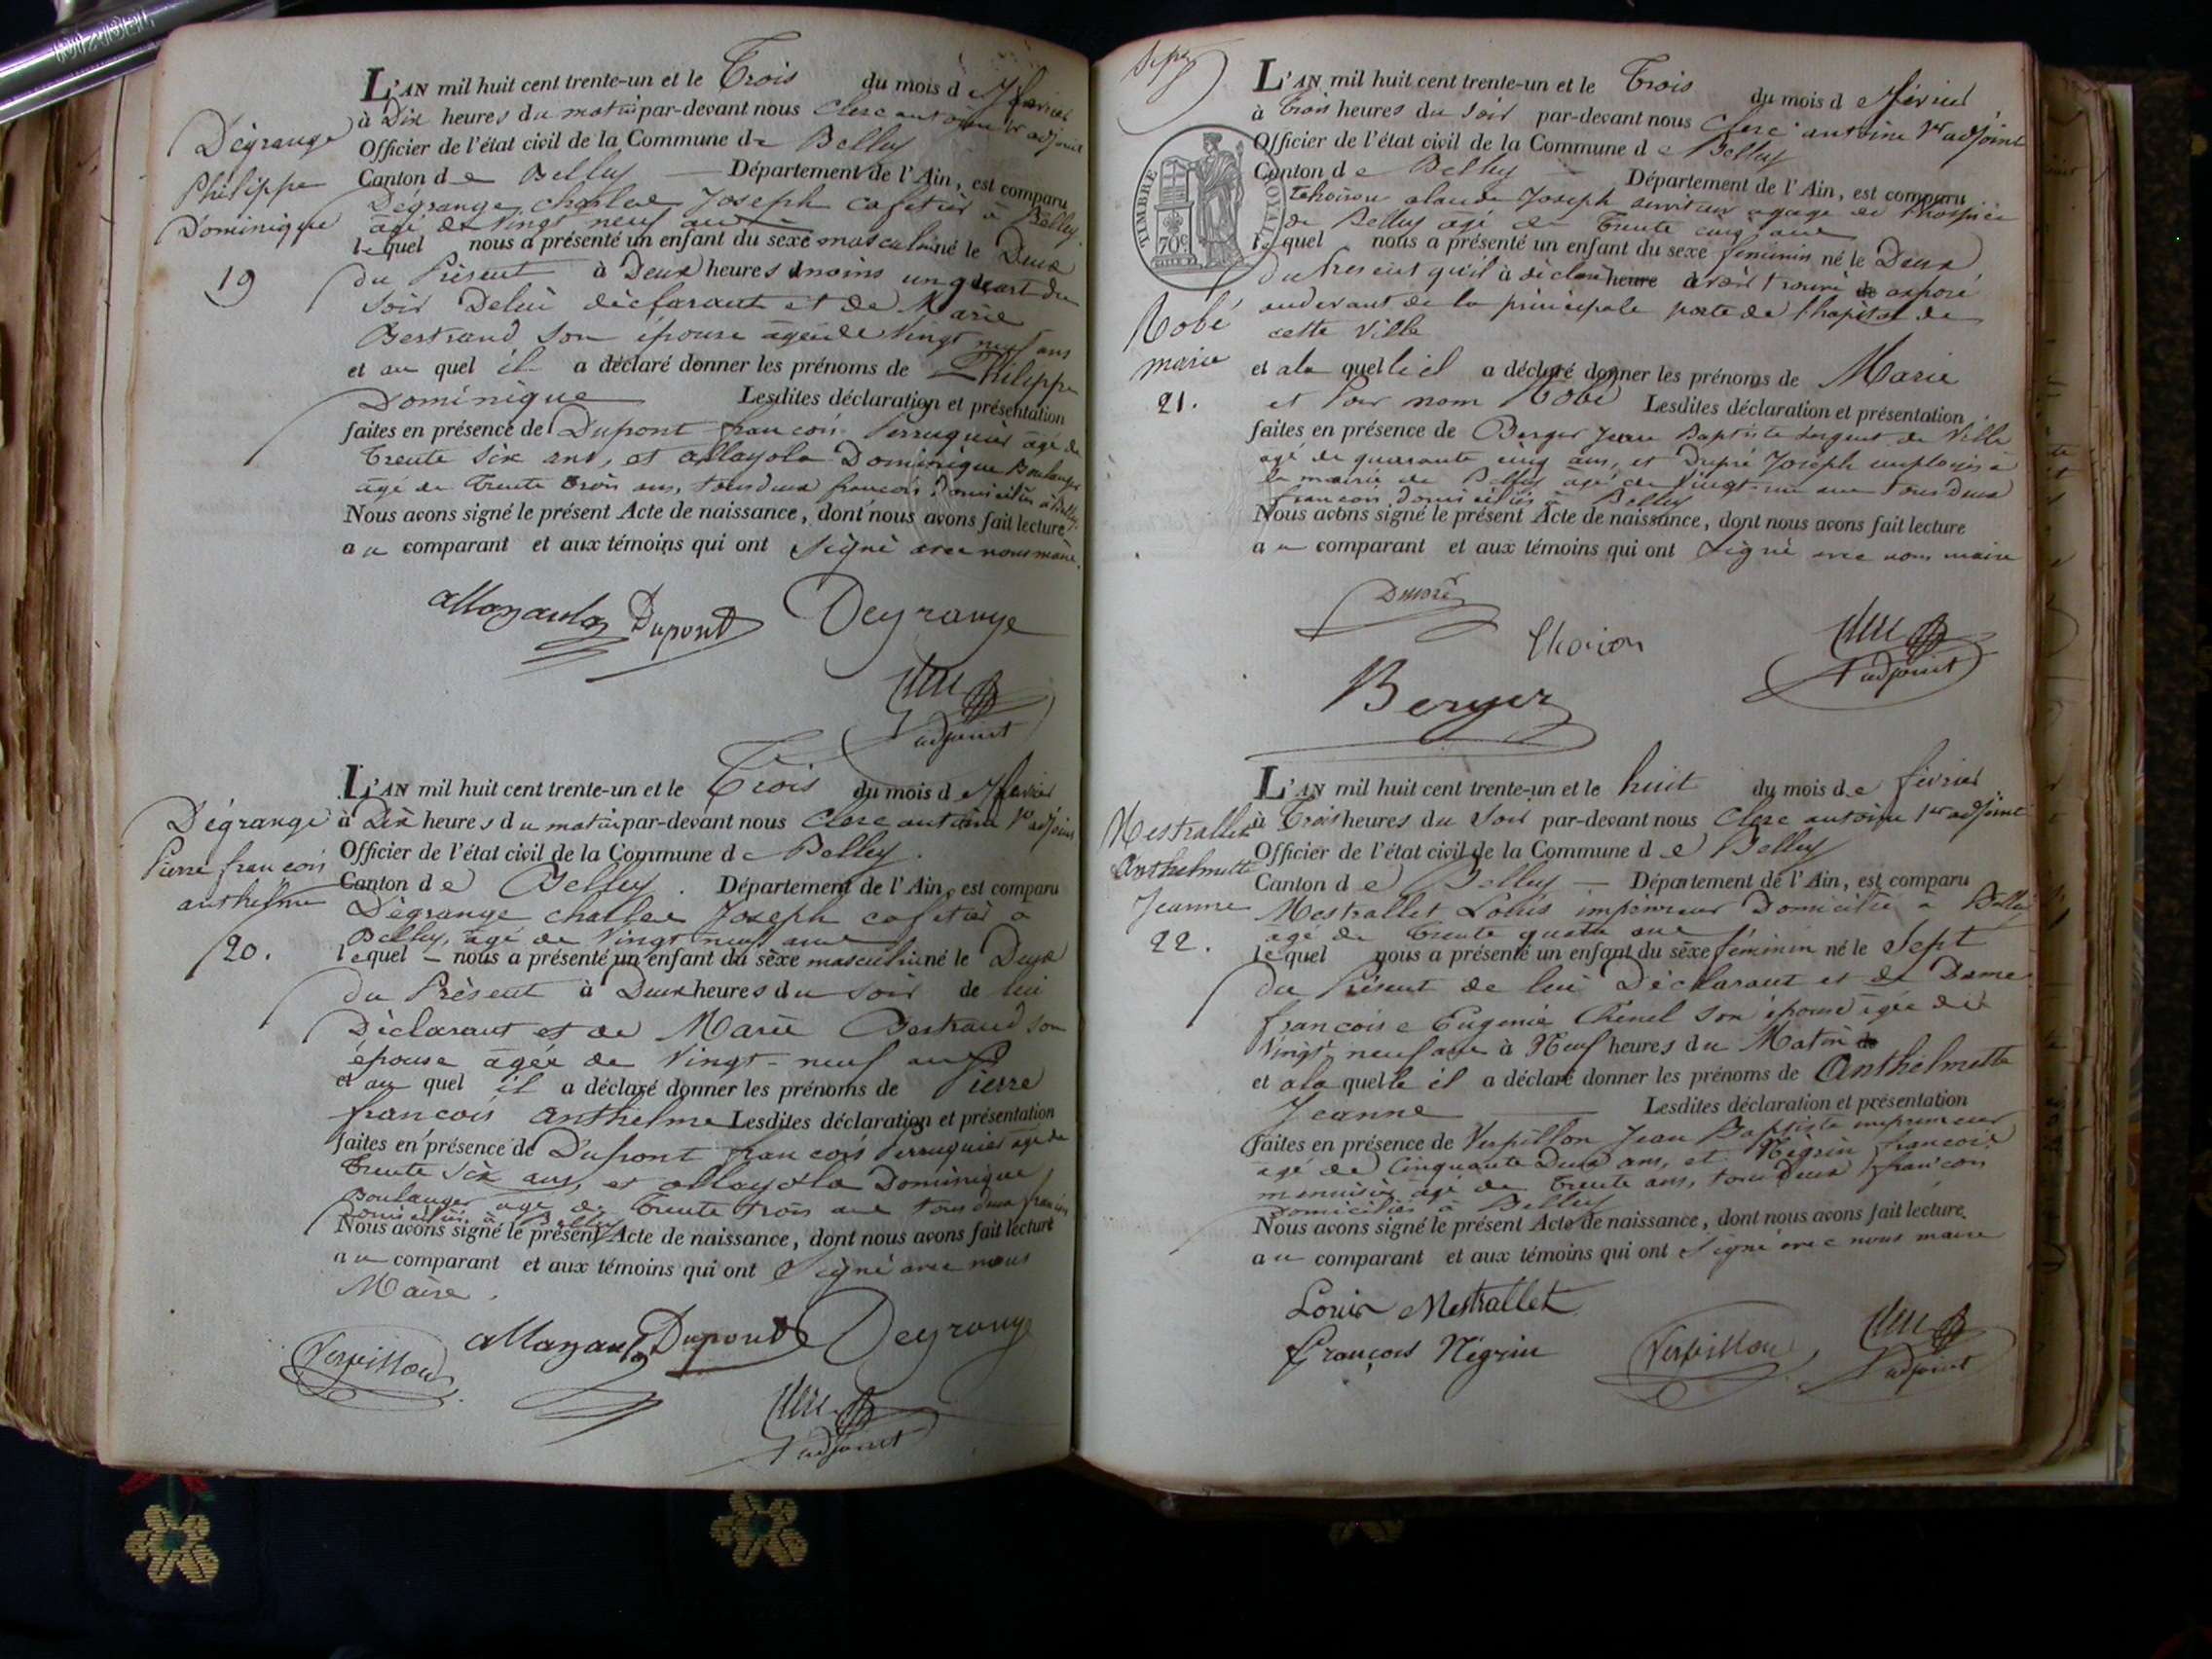 L'AN mil huit cent trente-un et le Trois du mois de février
à Dix heures du matin par-devant nous Clerc antoine 1er adjoint
Officier de l'état civil de la Commune de Belley
Canton de Belley Département de l'Ain, est comparu
Dégrange charles Joseph cafetier à Belley
agé de Vingt neuf ans
lequel nous a présenté un enfant du sexe masculin né le Deux
du Présent à Deux heures moins un quart du
Soir De lui déclarant et de Marie
Bertrand Son épouse agée de Vingt neuf ans
et au quel il a déclaré donner les prénoms de Philippe
Dominique Lesdites déclaration et présentation
faites en présence de Dupont françois Perruquier agé de
Trente Six ans, et allayola Dominique Boulanger
agé de Trente Trois ans, tous deux françois Domiciliés à Belley.
Nous avons signé le présent Acte de naissance, dont nous avons fait lecture
au comparant et aux témoins qui ont Signé avec nous maire.
Dégrange
Philippe
Dominique
19
Dupont Degrange
Clerc
adjoint
L'AN mil huit cent trente-un et le Trois du mois de février
à Dix heures du matin par-devant nous Clerc antoine 1er adjoint
Officier de l'état civil de la Commune de Belley.
Canton de Belley. Département de l'Ain, est comparu
Dégrange charles Joseph cafetier a
Belley, agé de Vingt neuf ans
lequel nous a présenté un enfant du sexe masculin né le Deux
du Présent à Deux heures du Soir de lui
Déclarant et de Marie Bertrand son
épouse agée de Vingt-neuf ans
et au quel il a déclaré donner les prénoms de Pierre
françois anthelme Lesdites déclaration et présentation
faites en présence de Dupont françois Perruquier agé de
Trente Six ans, et allayola Dominique
Boulanger agé de Trente trois ans tous deux françois
Domiciliés à Belley
Nous avons signé le présent Acte de naissance, dont nous avons fait lecture
au comparant et aux témoins qui ont Signé avec nous
Maire.
Dégrange
Pierre françois
anthelme
20.
Verpillon Dupont Degrange
Clerc
adjoint
TIMBRE ROYAL
70c
L'AN mil huit cent trente-un et le Trois du mois de février
à Trois heures du Soir par-devant nous Clerc antoine 1er adjoint
Officier de l'état civil de la Commune de Belley
Canton de Belley Département de l'Ain, est comparu
claude Joseph serviteur agagé de l'hospice
de Belley agé de Trente cinq ans
lequel nous a présenté un enfant du sexe feminin né le Deux
du present qu'il à déclaré heure avoir trouvé de exposé
au devant de la principale porte de l'hopital de
cette Ville
et ala quelle il a déclaré donner les prénoms de Marie
et Pour nom Robé Lesdites déclaration et présentation
faites en présence de Berger Jean Baptiste Sergent de Ville
agé de quarante cinq ans, et Dupré Joseph employés à
la mairie de Belley agé de Vingt-un ans Tous deux
françois domiciliés à Belley
Nous avons signé le présent Acte de naissance, dont nous avons fait lecture
au comparant et aux témoins qui ont Signé avec nous maire
Robé
marie
21.
Dupré
Clerc
adjoint
Berger
L'AN mil huit cent trente-un et le huit du mois de février
à Trois heures du Soir par-devant nous Clerc antoine 1er adjoint
Officier de l'état civil de la Commune de Belley
Canton de Belley Département de l'Ain, est comparu
Mestrallet Louis imprimeur Domicilié a Belley
agé de Trente quatre ans
lequel nous a présenté un enfant du sexe féminin né le Sept
du Présent de lui Déclarant et de Dame
françoise Eugenie Chenel Son épouse agée de
Vingt neuf ans à Neuf heures du Matin de
et ala quelle il a déclaré donner les prénoms de Anthelmette
Jeanne Lesdites déclaration et présentation
faites en présence de Verpillon Jean Baptiste imprimeur
agé de Cinquante Deux ans, et Négrin françois
menuisier agé de Trente ans, tous Deux françois
Domiciliés à Belley
Nous avons signé le présent Acte de naissance, dont nous avons fait lecture
au comparant et aux témoins qui ont Signé avec nous maire
Mestrallet
Anthelmette
Jeanne
22.
Louis Mestrallet
François Négrin Verpillon Clerc
adjoint